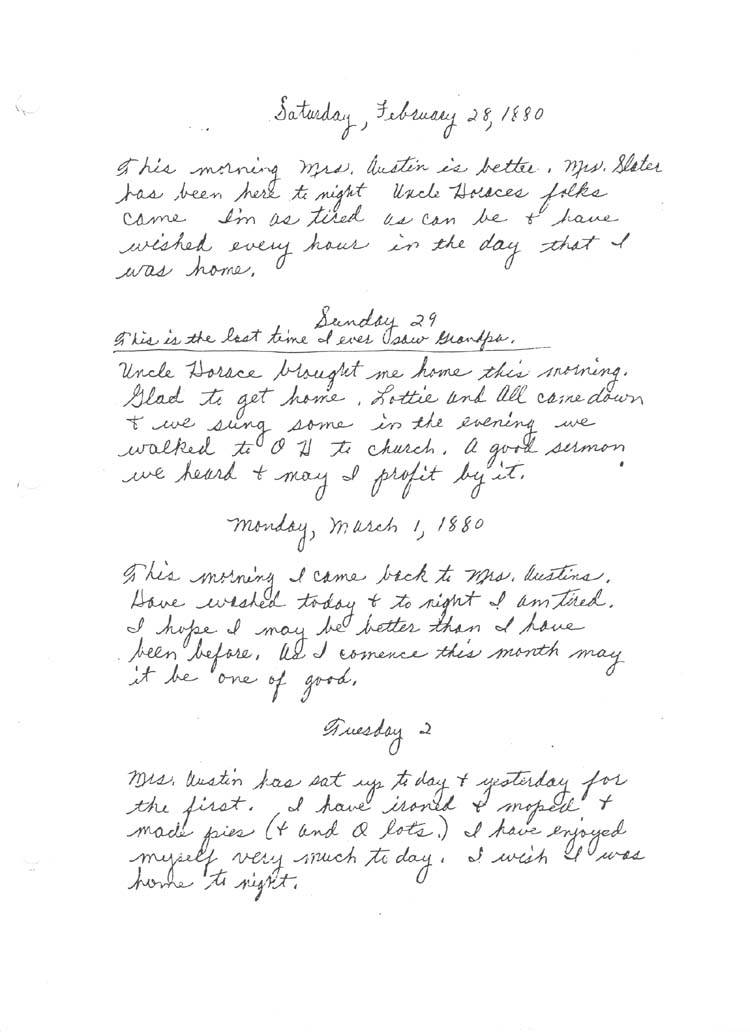 Saturday, February 28, 1880
This morning Mrs. Austin is better. Mrs. Slater
has been here to night Uncle Horaces folks
came I'm as tired as can be & have
wished every hour in the day that I
was home.
Sunday 29
This is the last time I ever saw Grandpa.
Uncle Horace brought me home this morning.
Glad to get home. Lottie and All came down
& we sung some in the evening we
walked to O H to church. A good sermon
we heard & may I profit by it.
Monday, March 1, 1880
This morning I came back to Mrs. Austins.
Have washed today & to night I am tired.
I hope I may be better than I have
been before. As I comence this month may
it be one of good.
Tuesday 2
Mrs. Austin has sat up to day & yesterday for
the first. I have ironed & moped &
made pies (& and O lots.) I have enjoyed
myself very much to day. I wish I was
home to night.